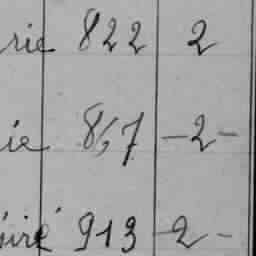 rie 822 2
ie 867 -2-
oiré 913 -2-